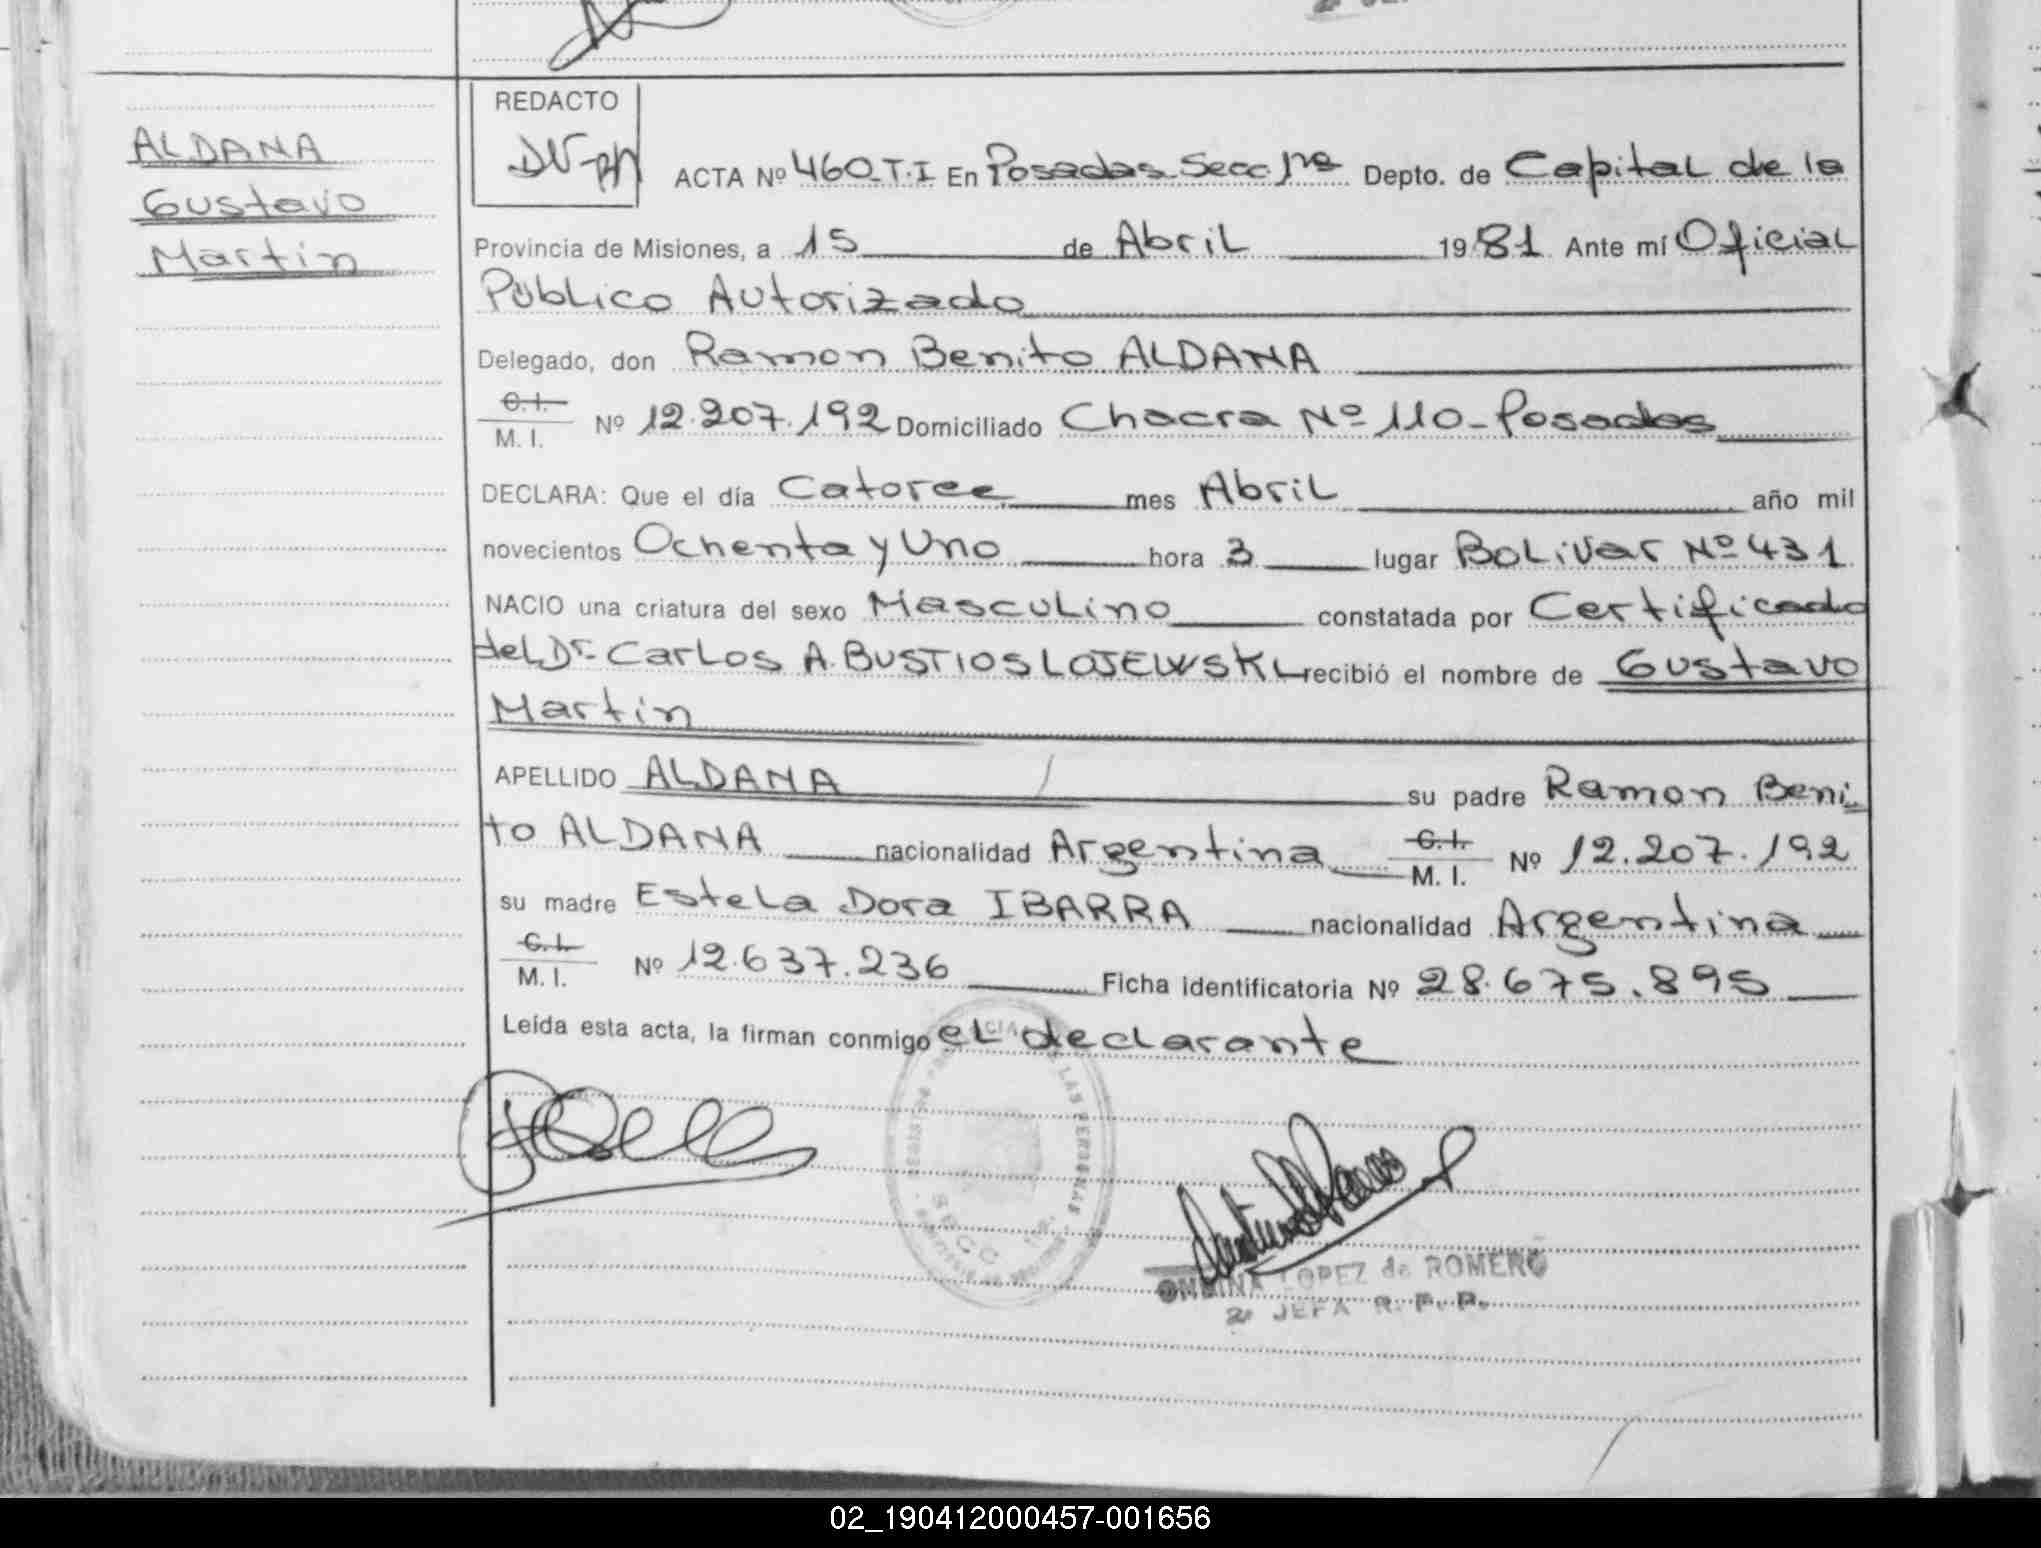 ALDANA
Gustavo
Martin
REDACTO
ACTA Nº 460 T.I En Posadas Secc 1ra Depto. de Capital de la
Provincia de Misiones, a 15 de Abril 1981 Ante mí Oficial
Público Autorizado
Delegado, don Ramon Benito ALDANA
C.I.
M. I. Nº 12.207.192 Domiciliado Chacra Nº 110-Posadas
DECLARA: Que el día Catorce mes Abril año mil
novecientos Ochenta y Uno hora 3 lugar BoLivar Nº 431
NACIO una criatura del sexo Masculino constatada por Certificado
del Dr. Carlos A. BUSTIOS LOJEWSKI recibió el nombre de Gustavo
Martin
APELLIDO ALDANA su padre Ramon Beni-
to ALDANA nacionalidad Argentina C.I. M. I. Nº 12.207.192
su madre Estela Dora IBARRA nacionalidad Argentina
C.I.
M. I. Nº 12.637.236 Ficha identificatoria Nº 28.675.895
Leída esta acta, la firman conmigo el declarante
LAS PERSONAS
SECC
LOPEZ de ROMERO
JEFA R. P. P.
02_190412000457-001656